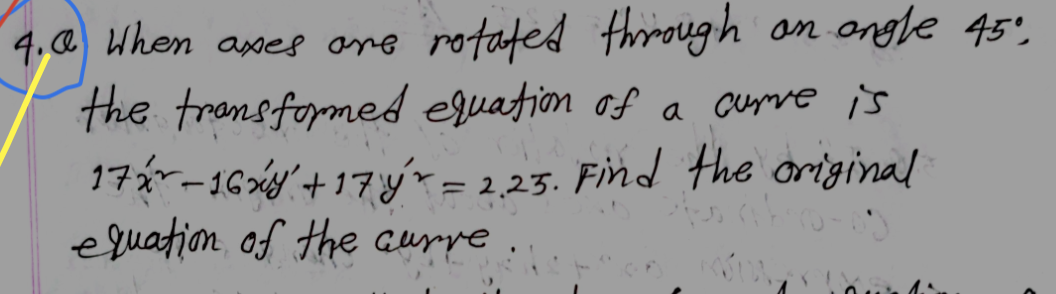 4.a) When axes are rotated through an angle 45°,
the transformed equation of a curve is
17x'² - 16x'y' + 17y'² = 2.25. Find the original
equation of the curve.